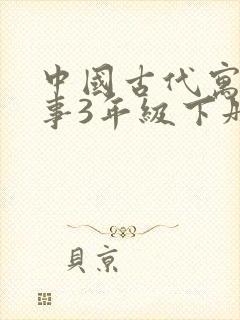 中國古代寓
事3年級下册
貝京